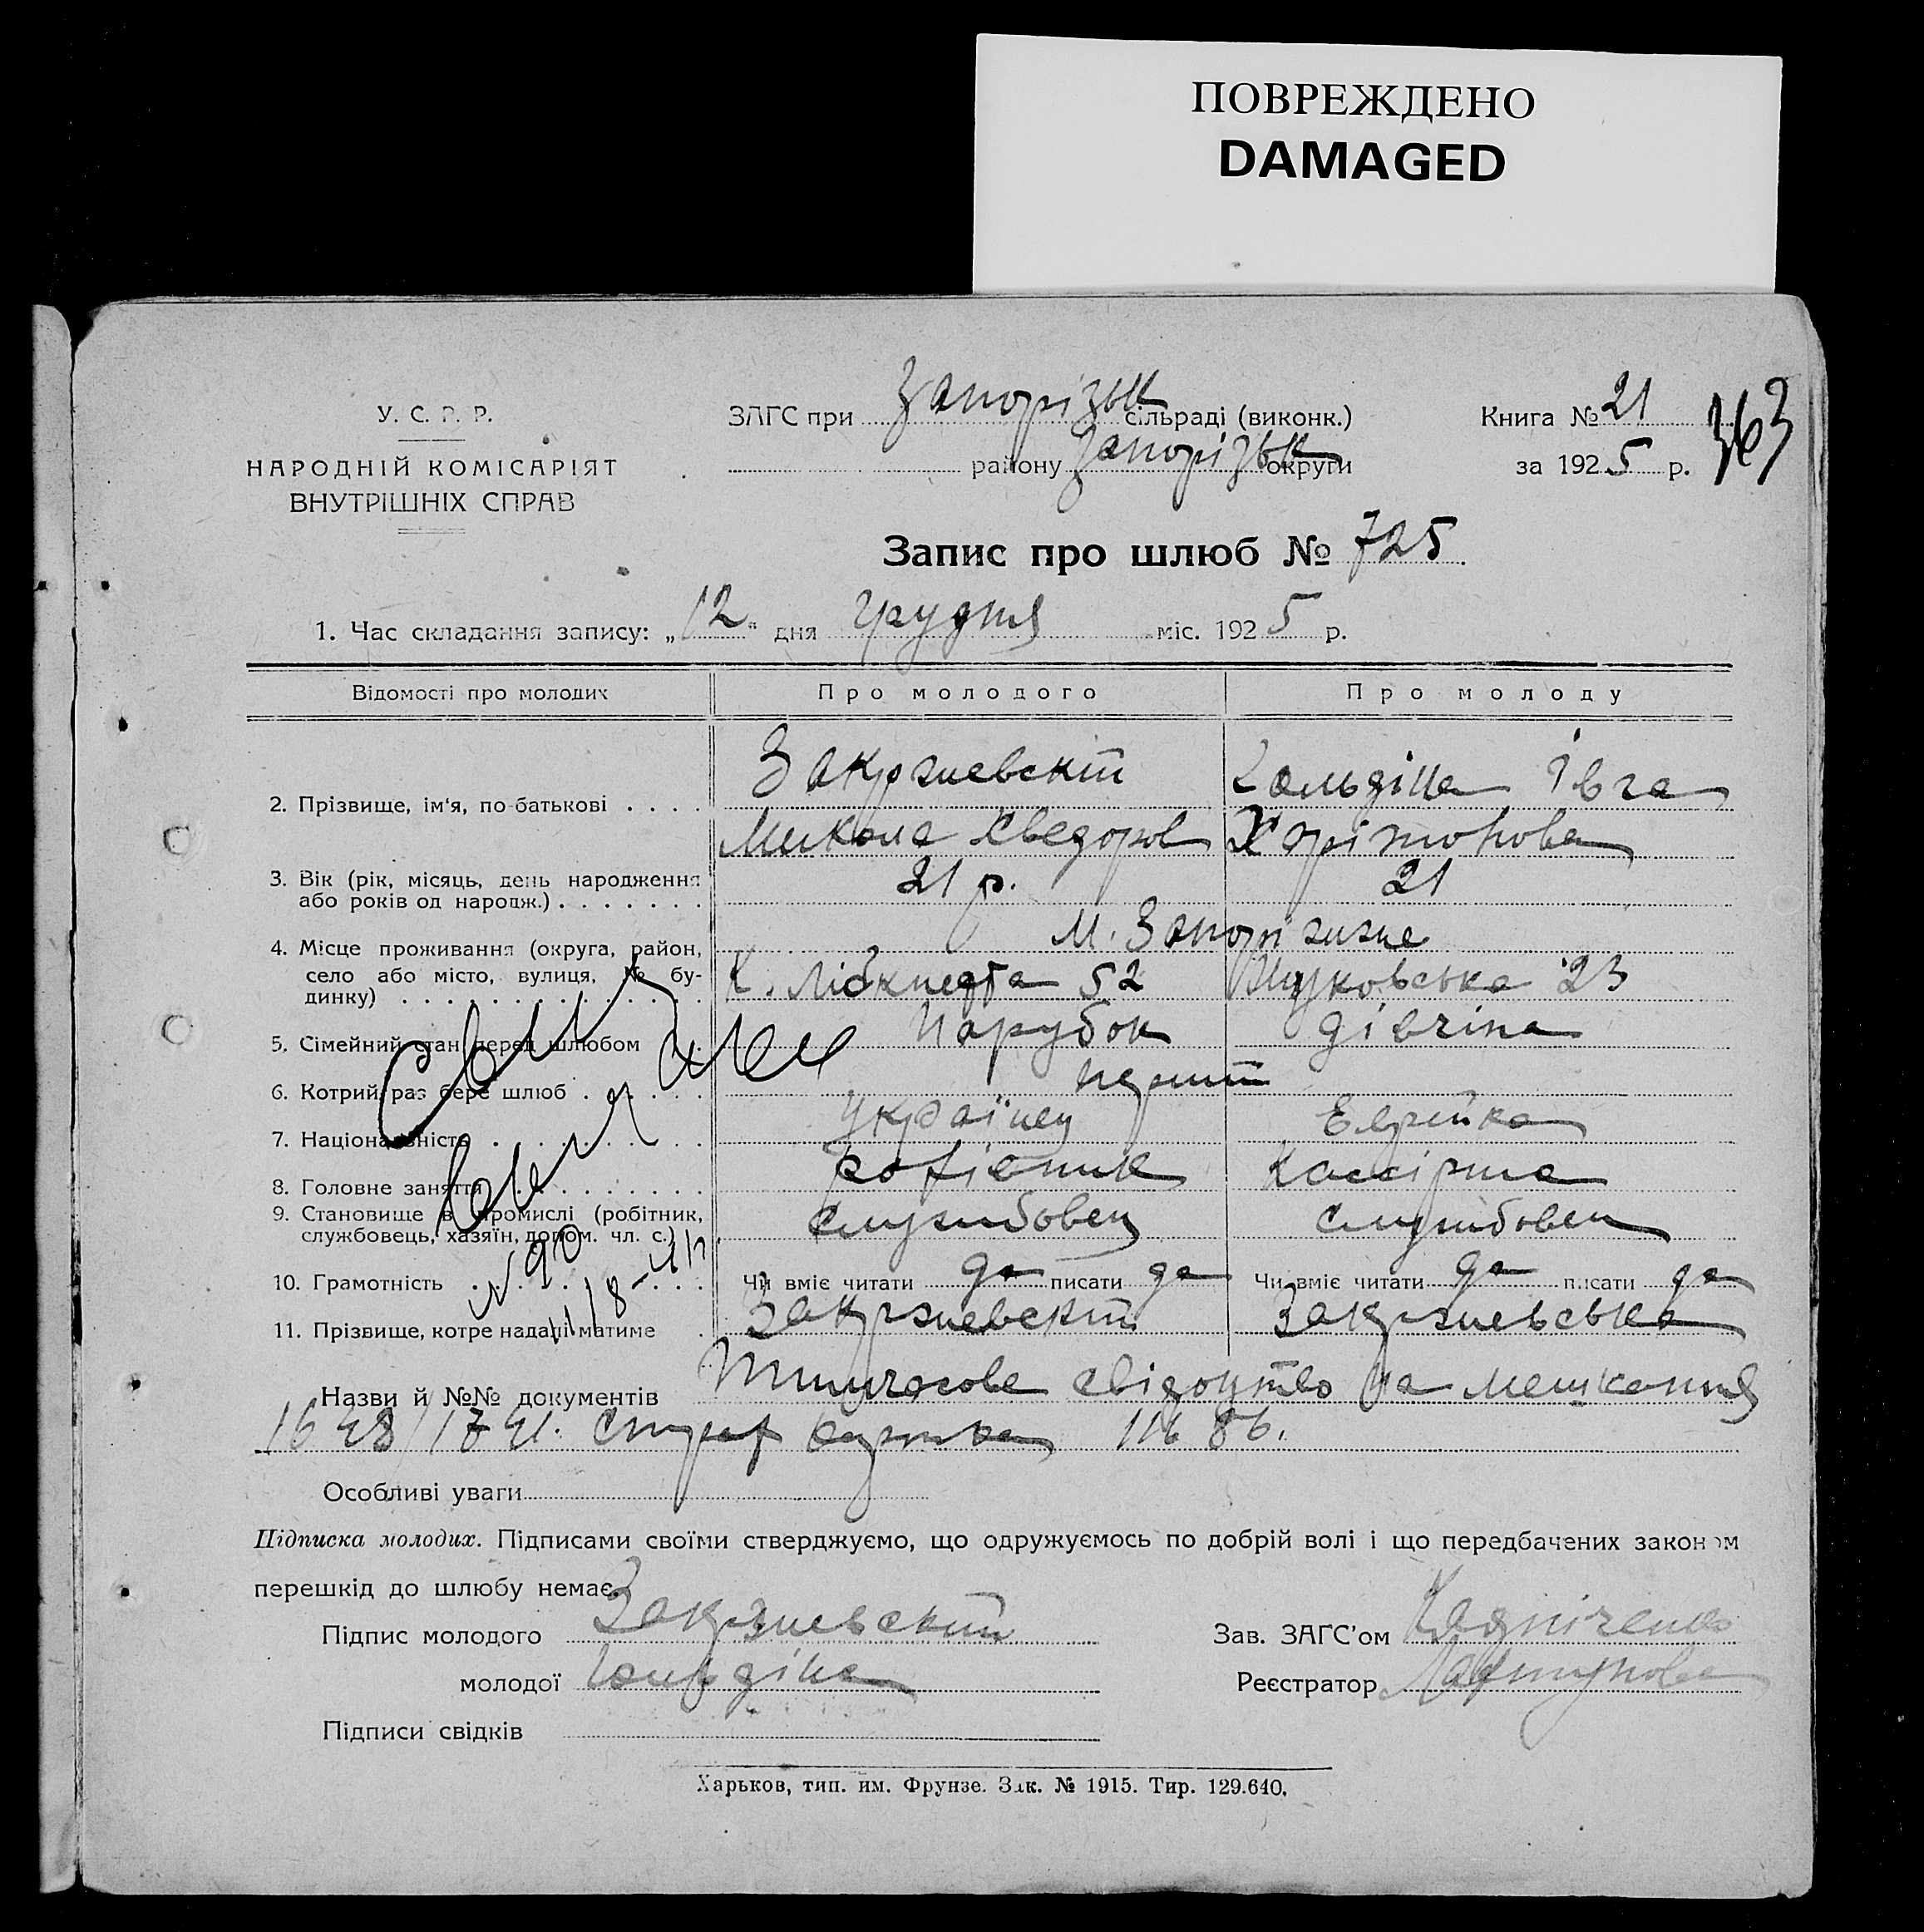 ПОВРЕЖДЕНО
DAMAGED
У. С. Р. Р.
НАРОДНІЙ КОМІСАРІЯТ
ВНУТРІШНІХ СПРАВ
ЗАГС при Запорізьк сільраді (виконк.)
району Запорізьк округи
Книга № 21
за 1925 р.
363
Запис про шлюб № 725
1. Час складання запису: „12" дня Грудня міс. 1925 р.
Відомості про молодих Про молодого Про молоду
2. Прізвище, ім'я, по-батькові . . . . Закржевскій Гольдіна Івга
Микола Хведоров Харітонова
3. Вік (рік, місяць, день народження або років од народж.) . . . . . . . 21 р. 21
4. Місце проживання (округа, район, село або місто, вулиця, № будинку) . . . . . . . . . . . . . . м. Запоріжже
К. Лібкнехта 52 Жуковська 23
5. Сімейний стан перед шлюбом Парубок дівчіна
6. Котрий раз бере шлюб . . . . . перший
7. Національність . . . . . . . . Українец Еврейка
8. Головне заняття . . . . . . . . робітник Кассірша
9. Становище в промислі (робітник, службовець, хазяїн, допом. чл. с.) службовец службовец
10. Грамотність . . . . . . . . Чи вміє читати да писати да Чи вміє читати да писати да
11. Прізвище, котре надалі матиме . Закржевскій Закржевська
Свид
выдано
№ 90
Назви й №№ документів Тимчасове свідоцтво на мешкання
1648/1741. Страх картка 11686.
Особливі уваги
Підписка молодих. Підписами своїми стверджуємо, що одружуємось по добрій волі і що передбачених законом
перешкід до шлюбу немає.
Підпис молодого Закржевский
молодої Гольдіна
Підписи свідків
Зав. ЗАГС'ом
Реєстратор
Харьков, тип. им. Фрунзе. Зак. № 1915. Тир. 129.640.